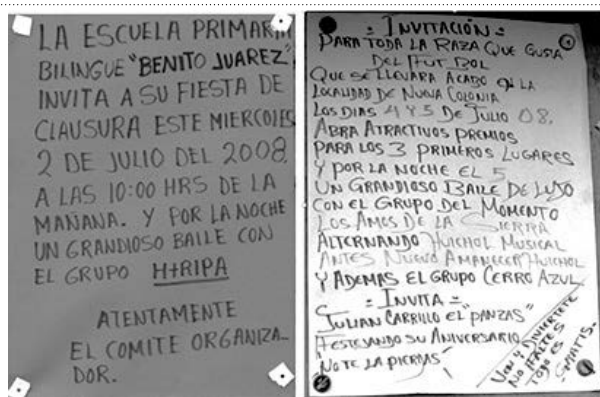 LA ESCUELA PRIMARIA
BILINGUE "BENITO JUAREZ"
INVITA A SU FIESTA DE
CLAUSURA ESTE MIERCOLES
2 DE JULIO DEL 2008.
A LAS 10:00 HRS DE LA
MAÑANA. Y POR LA NOCHE
UN GRANDIOSO BAILE CON
EL GRUPO H+RIPA
ATENTAMENTE
EL COMITE ORGANIZA-
DOR.
= INVITACIÓN =
PARA TODA LA RAZA QUE GUSTA
DEL FUT BOL
QUE SE LLEVARA ACABO EN LA
LOCALIDAD DE NUEVA COLONIA
LOS DIAS 4 Y 5 DE JULIO 08.
ABRA ATRACTIVOS PREMIOS
PARA LOS 3 PRIMEROS LUGARES
Y POR LA NOCHE EL 5
UN GRANDIOSO BAILE DE LUJO
CON EL GRUPO DEL MOMENTO
LOS AMOS DE LA SIERRA
ALTERNANDO HUICHOL MUSICAL
ANTES NUEVO AMANECER HUICHOL
Y ADEMAS EL GRUPO CERRO AZUL
= INVITA =
JULIAN CARRILLO EL "PANZAS"
FESTEJANDO SU ANIVERSARIO
NO TE LA PIERDAS
VEN Y DIVIERTETE
NO FALTES
TODO ES
GRATIS.